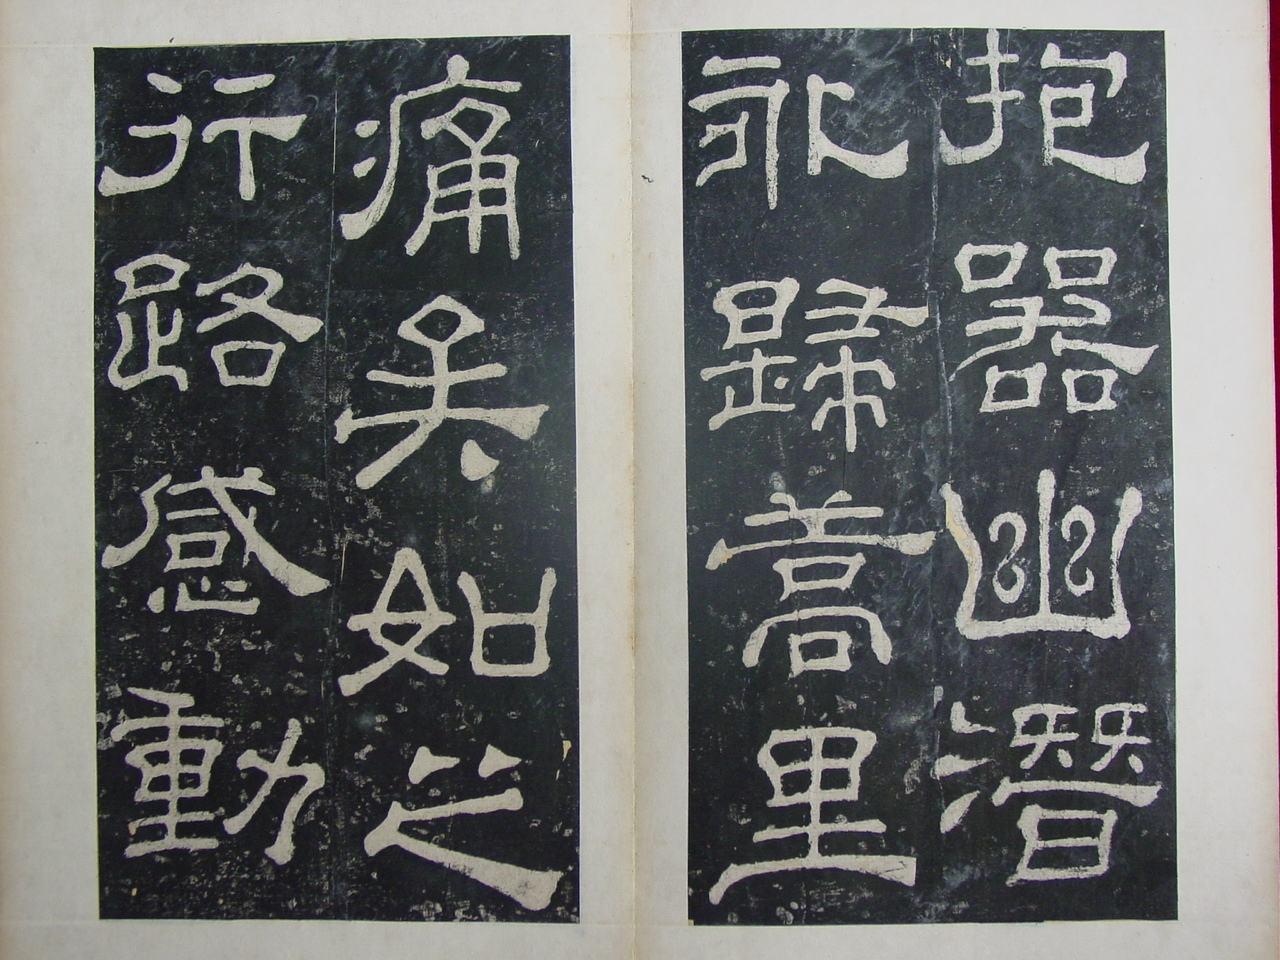 抱器幽潛
永歸蒿里
痛矣如之
行路感動